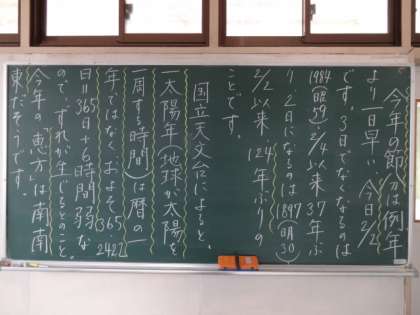 今年の節分は例年
より一日早い、今日2/2
です。3日でなくなるのは
1984(昭59)2/4以来37年ぶ
り、2日になるのは1897(明30)
2/2以来124年ぶりの
ことです。
国立天文台によると、
一太陽年(地球が太陽を
一周する時間)は暦の一
年ではなく、およそ365.2422
日=365日+6時間弱な
ので、ずれが生じるとのこと。
今年の恵方は南南
東だそうです。